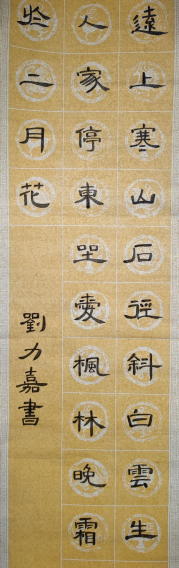 遠上寒山石徑斜白雲生
人家停東坐愛楓林晚霜
於二月花
劉力嘉書